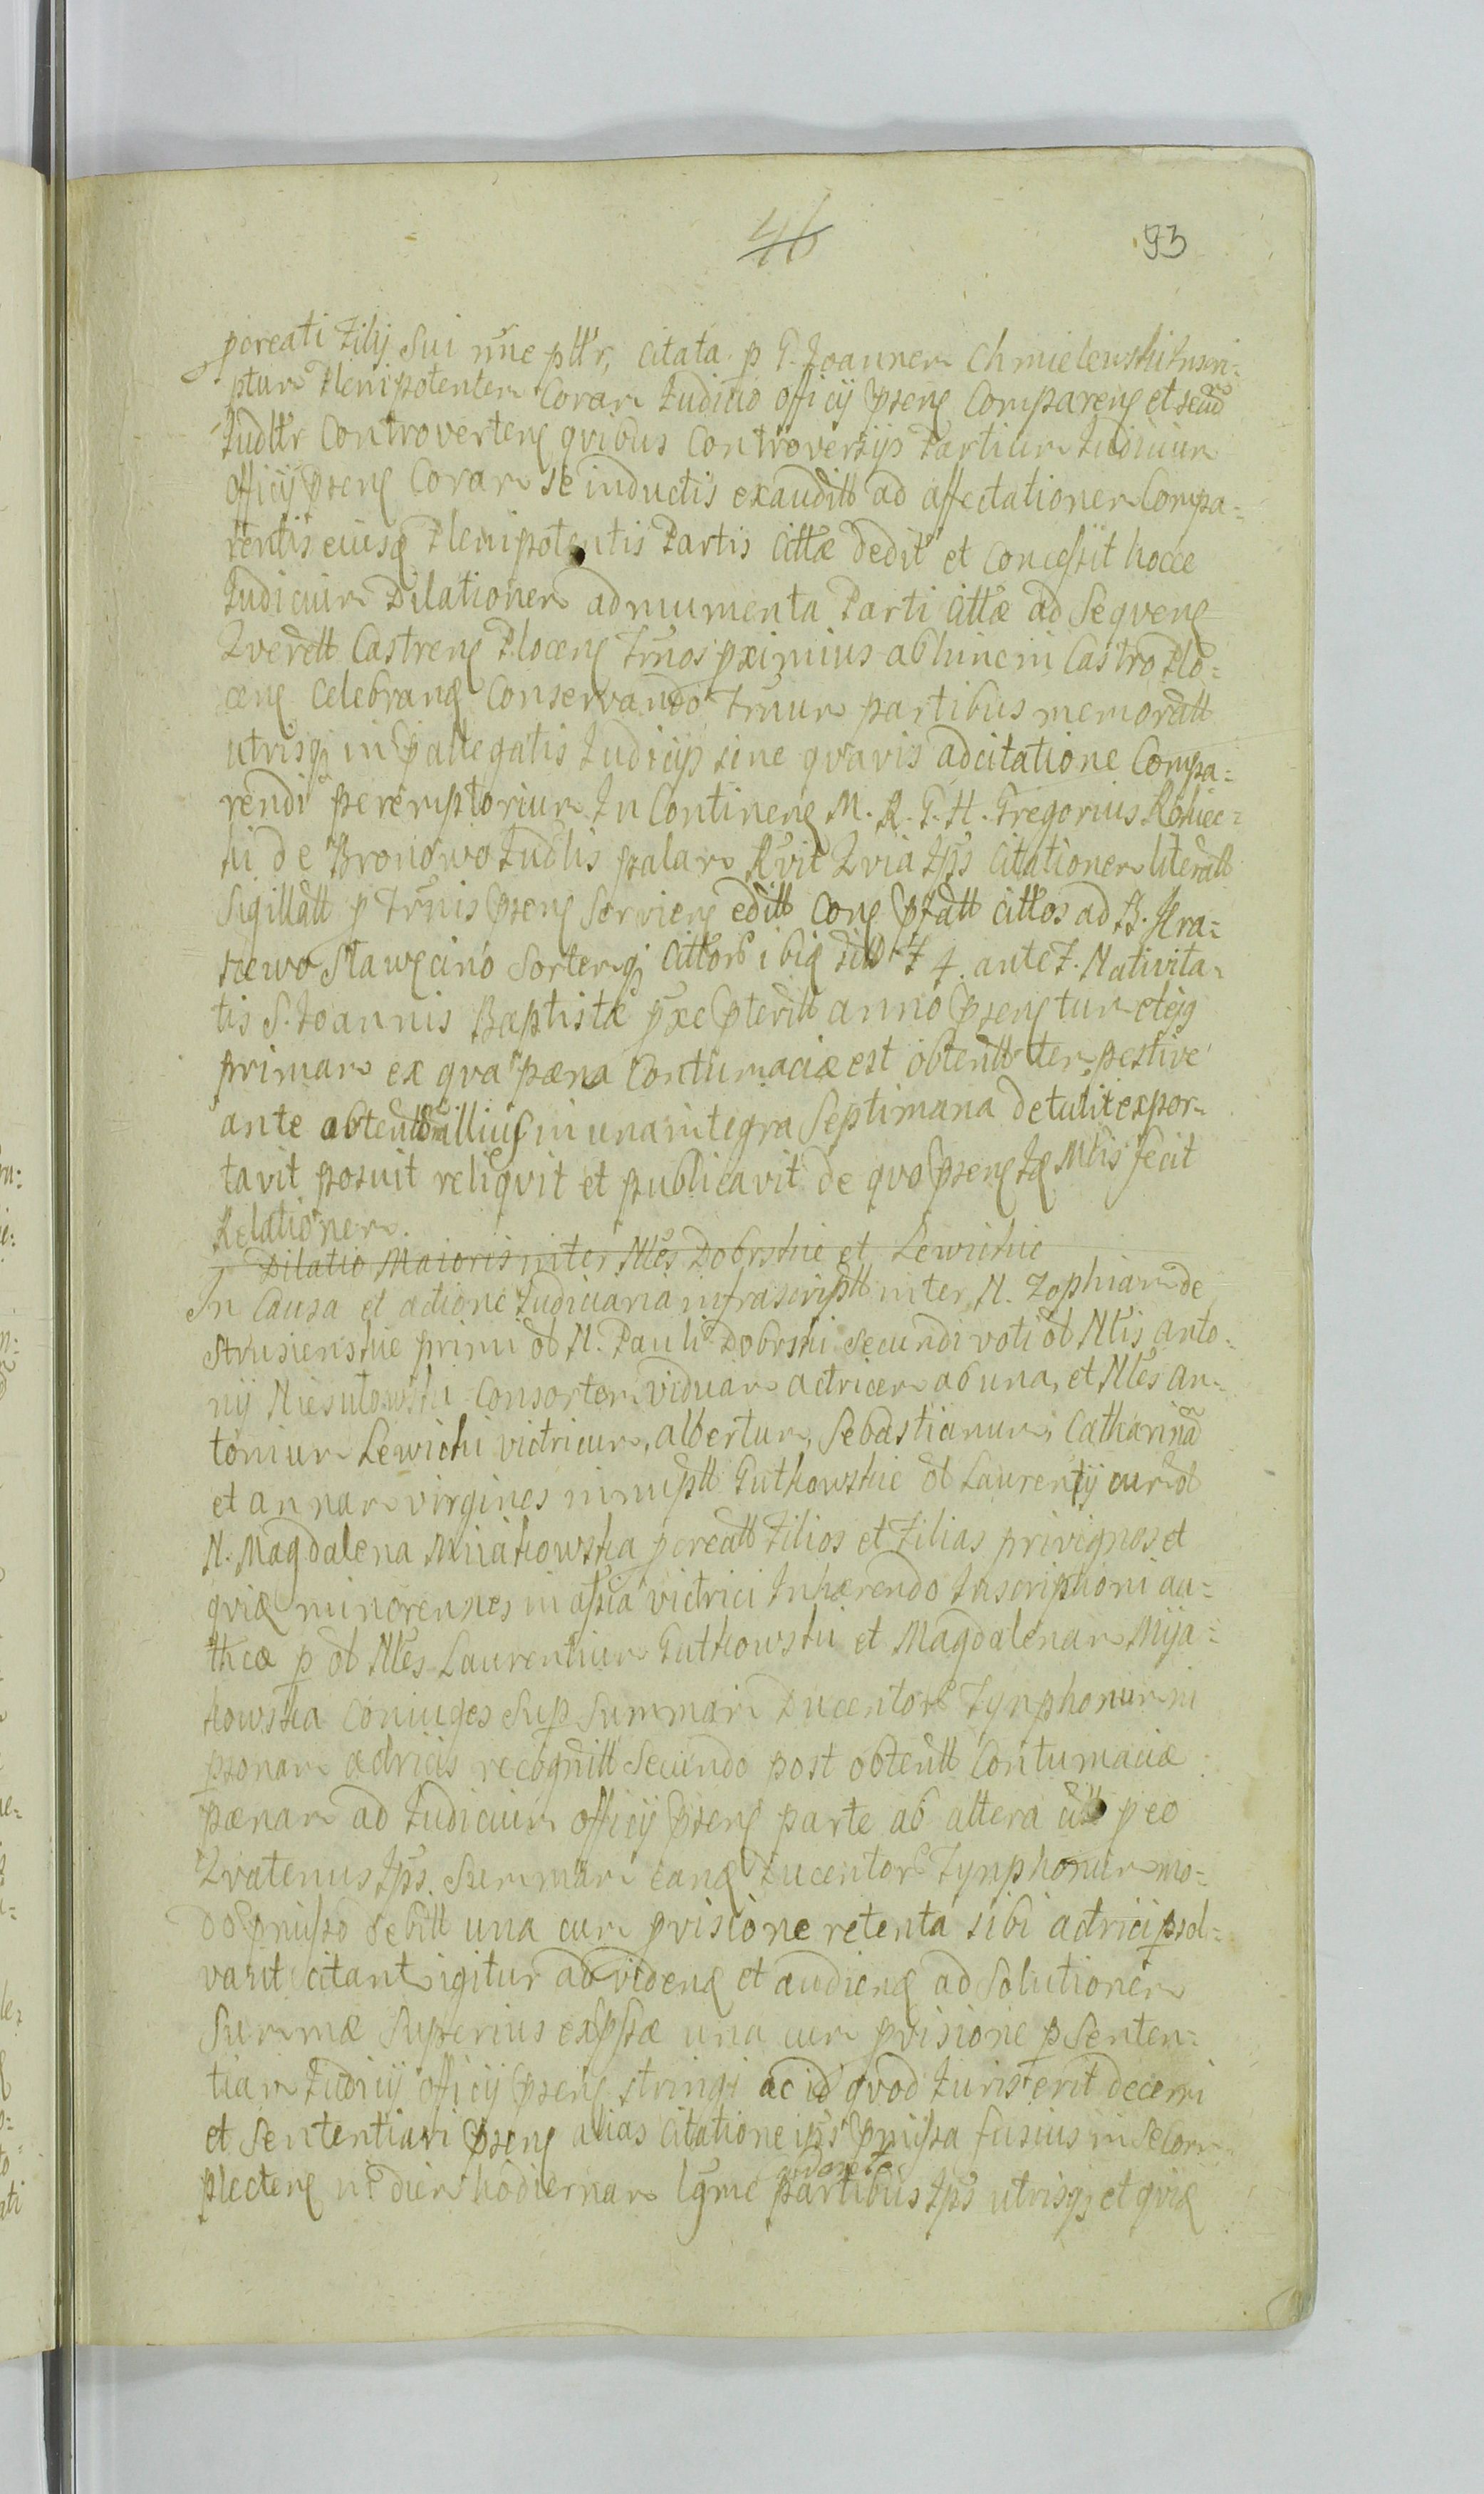 46
93
pcreati Filij Sui nn̄c pltr, citata p G. Joannem Chmielewski Inscri=
ptum Plenipotentem Coram Judicio Officij pn̄s Comparen et secūd
Judltr Controverten qvibus Controversijs Partium Judicium
Officij pn̄s Coram se inductis exauditt ad affectationem Compa=
rentis eiusq Plenipotentis Partis Cittæ dedit et Concessit hocce
Judicium Dilationem ad mumenta Parti Cittæ ad Seqven
Qverell Castren Plocen Trnos pximius abhinc in Castro Plo=
cen Celebran Conservando Trnum partibus memoratt
utrisq in pallegatis Judicijs sine qvavis adcitatione Compa=
rendi peremptorium In Continen M. R. G. H. Gregorius
de Bronowo Judlis palam Rvit Qvia Ips Citationem literatt
Sigillatt p Trnis pn̄s Servien editt Con pfatt Cittos ad B. Kra=
szewo Sławęcino Sortemq Cittor ibiq F 4. ante F. Nativita=
tis S. Joannis Baptistæ pxe pteritt anno pn̄s
primam ex qva pæna Contumaciæ est obtentt tempestive
ante obtentt illius in una integra Septimana detulit expor=
tavit posuit reliqvit et publicavit de qvo pn̄s Mlis fecit
Relationem.
Dilatio Maioris inter Nles Dobrskie et Lewickie
In Causa et actione Judiciaria infrascriptt inter N. Zophiam de
Strusienskie primi ol N. Pauli Dobrski secundi voti ol Nlis Anto=
nij Niesułowski Consortem viduam actricem ab una, et Nles An=
tonium Lewicki victricum, Albertum, Sebastianum, Catharinā
et Annam virgines innuptt Gutkowskie ol Laurentij cum ol
N. Magdalena Miiakowska pcreatt Filios et Filias privignos et
qviq minorennes in assia victrici Inhærendo Inscriptioni au=
thcæ p ol Nles Laurentium Gutkowski et Magdalenam Mija=
kowska Coniuges Sup Summam Ducentor Tynphonum in
psonam actricis recognitt Secundo post obtentt Contumaciæ
pænam ad Judicium Officij pn̄s parte ab altera citt p eo
Qvatenus Ips. Summam eand Ducentor Tynphonum mo=
do pmisso debitt una cum pvisione retenta sibi actrici psol=
vant citant igitur ad viden et audien ad Solutionem
Summæ Superius expssæ una cum pvisione p Senten=
tiam Judicij Officij pn̄s stringi ac id qvod Juris erit decerni
et Sententiari pn̄s alias Citatione ips pmissa fusius in se Com=
plecten in diem hodiernam lgme partibus Ips utrisq et qviq